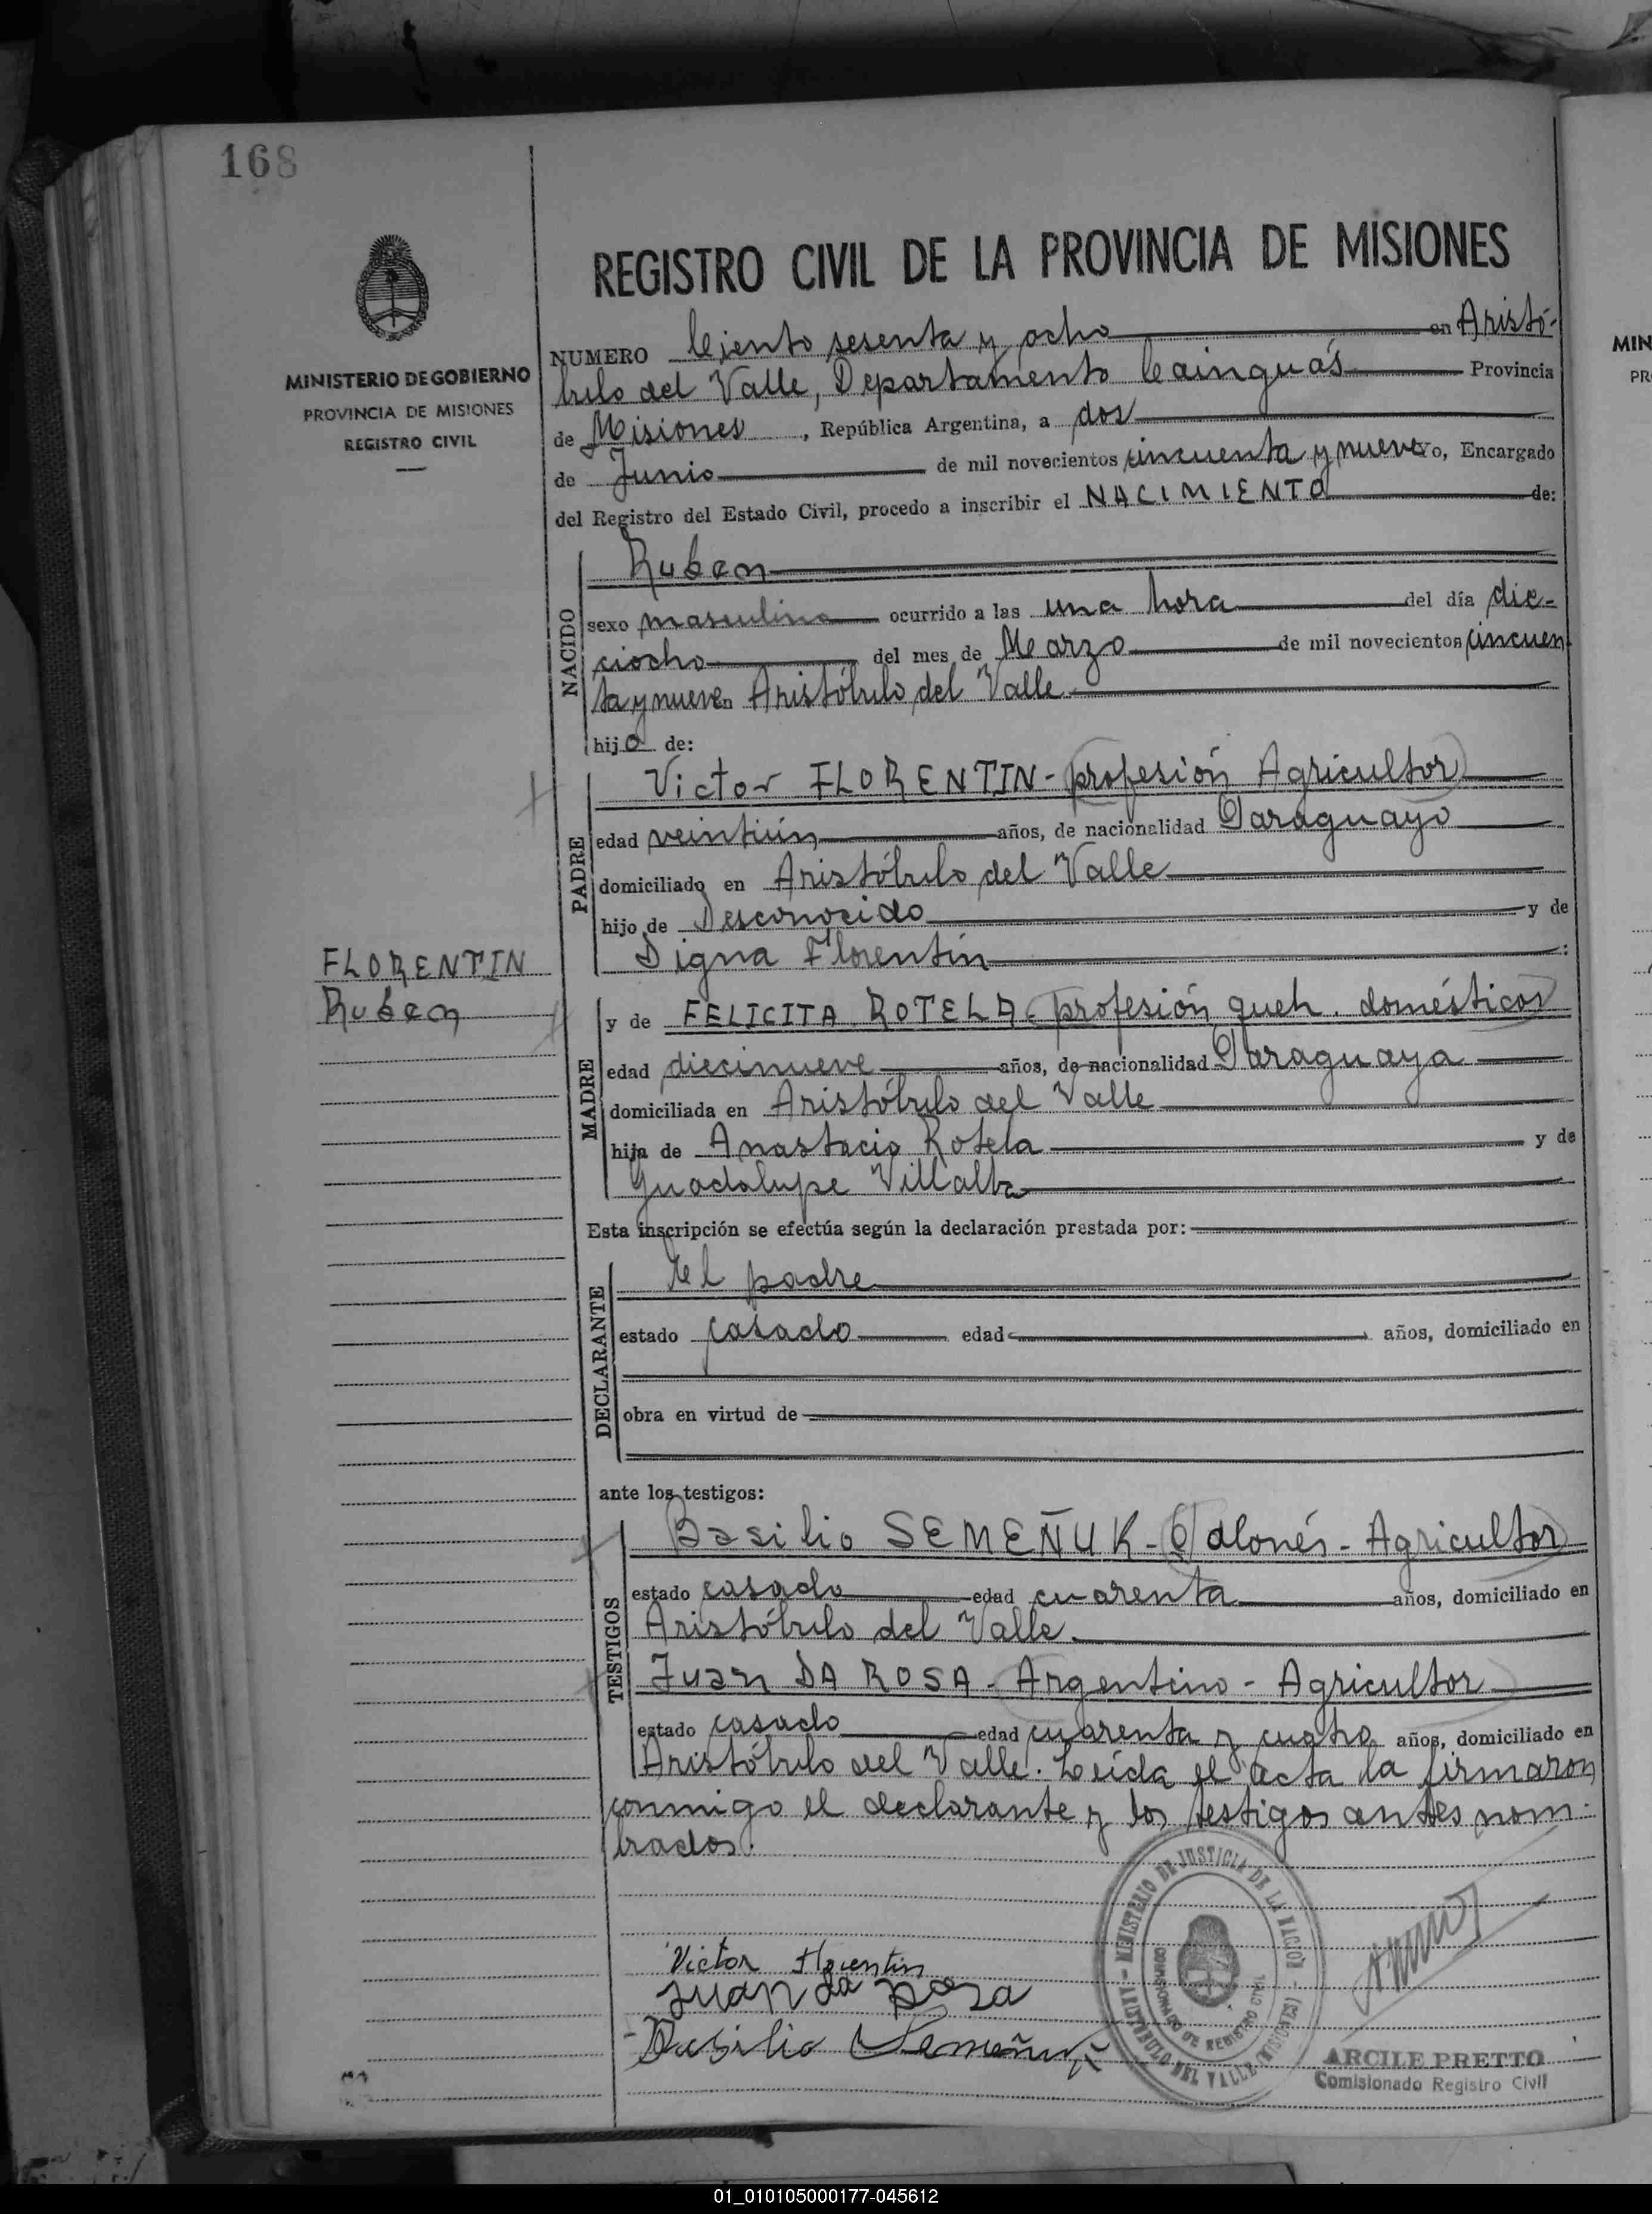 168
MINISTERIO DE GOBIERNO
PROVINCIA DE MISIONES
REGISTRO CIVIL
FLORENTIN
Ruben
REGISTRO CIVIL DE LA PROVINCIA DE MISIONES
NUMERO Ciento sesenta y ocho en Aristó-
bulo del Valle, Departamento Cainguás Provincia
de Misiones, República Argentina, a dos
de Junio de mil novecientos cincuenta y nueve yo, Encargado
del Registro del Estado Civil, procedo a inscribir el NACIMIENTO de:
NACIDO
Ruben
sexo masculino ocurrido a las una hora del día die-
ciocho del mes de Marzo de mil novecientos cincuen
ta y nueve en Aristóbulo del Valle
hijo de:
PADRE
Victor FLORENTIN - profesión Agricultor
edad veintiún años, de nacionalidad Paraguayo
domiciliado en Aristóbulo del Valle
hijo de Desconocido y de
Digna Florentín :
MADRE
y de FELICITA ROTELA - profesión queh. domésticos
edad diecinueve años, de nacionalidad Paraguaya
domiciliada en Aristóbulo del Valle
hija de Anastacio Rotela y de
Guadalupe Villalba
Esta inscripción se efectúa según la declaración prestada por:
DECLARANTE
El padre
estado casado edad años, domiciliado en
obra en virtud de
ante los testigos:
TESTIGOS
Basilio SEMEÑUK - Polonés - Agricultor
estado casado edad cuarenta años, domiciliado en
Aristóbulo del Valle.
Juan DA ROSA - Argentino - Agricultor
estado casado edad cuarenta y cuatro años, domiciliado en
Aristóbulo del Valle. Leída el acta la firmaron
conmigo el declarante y los testigos antes nom-
brados.
Victor Florentin
Juan da Rosa
Basilio Semeñuk
MINISTERIO DE JUSTICIA DE LA NACION - ARISTOBULO DEL VALLE (MISIONES) -
COMISIONADO DE REGISTRO CIVIL
ARCILE PRETTO
Comisionado Registro Civil
MIN
PR
01_010105000177-045612